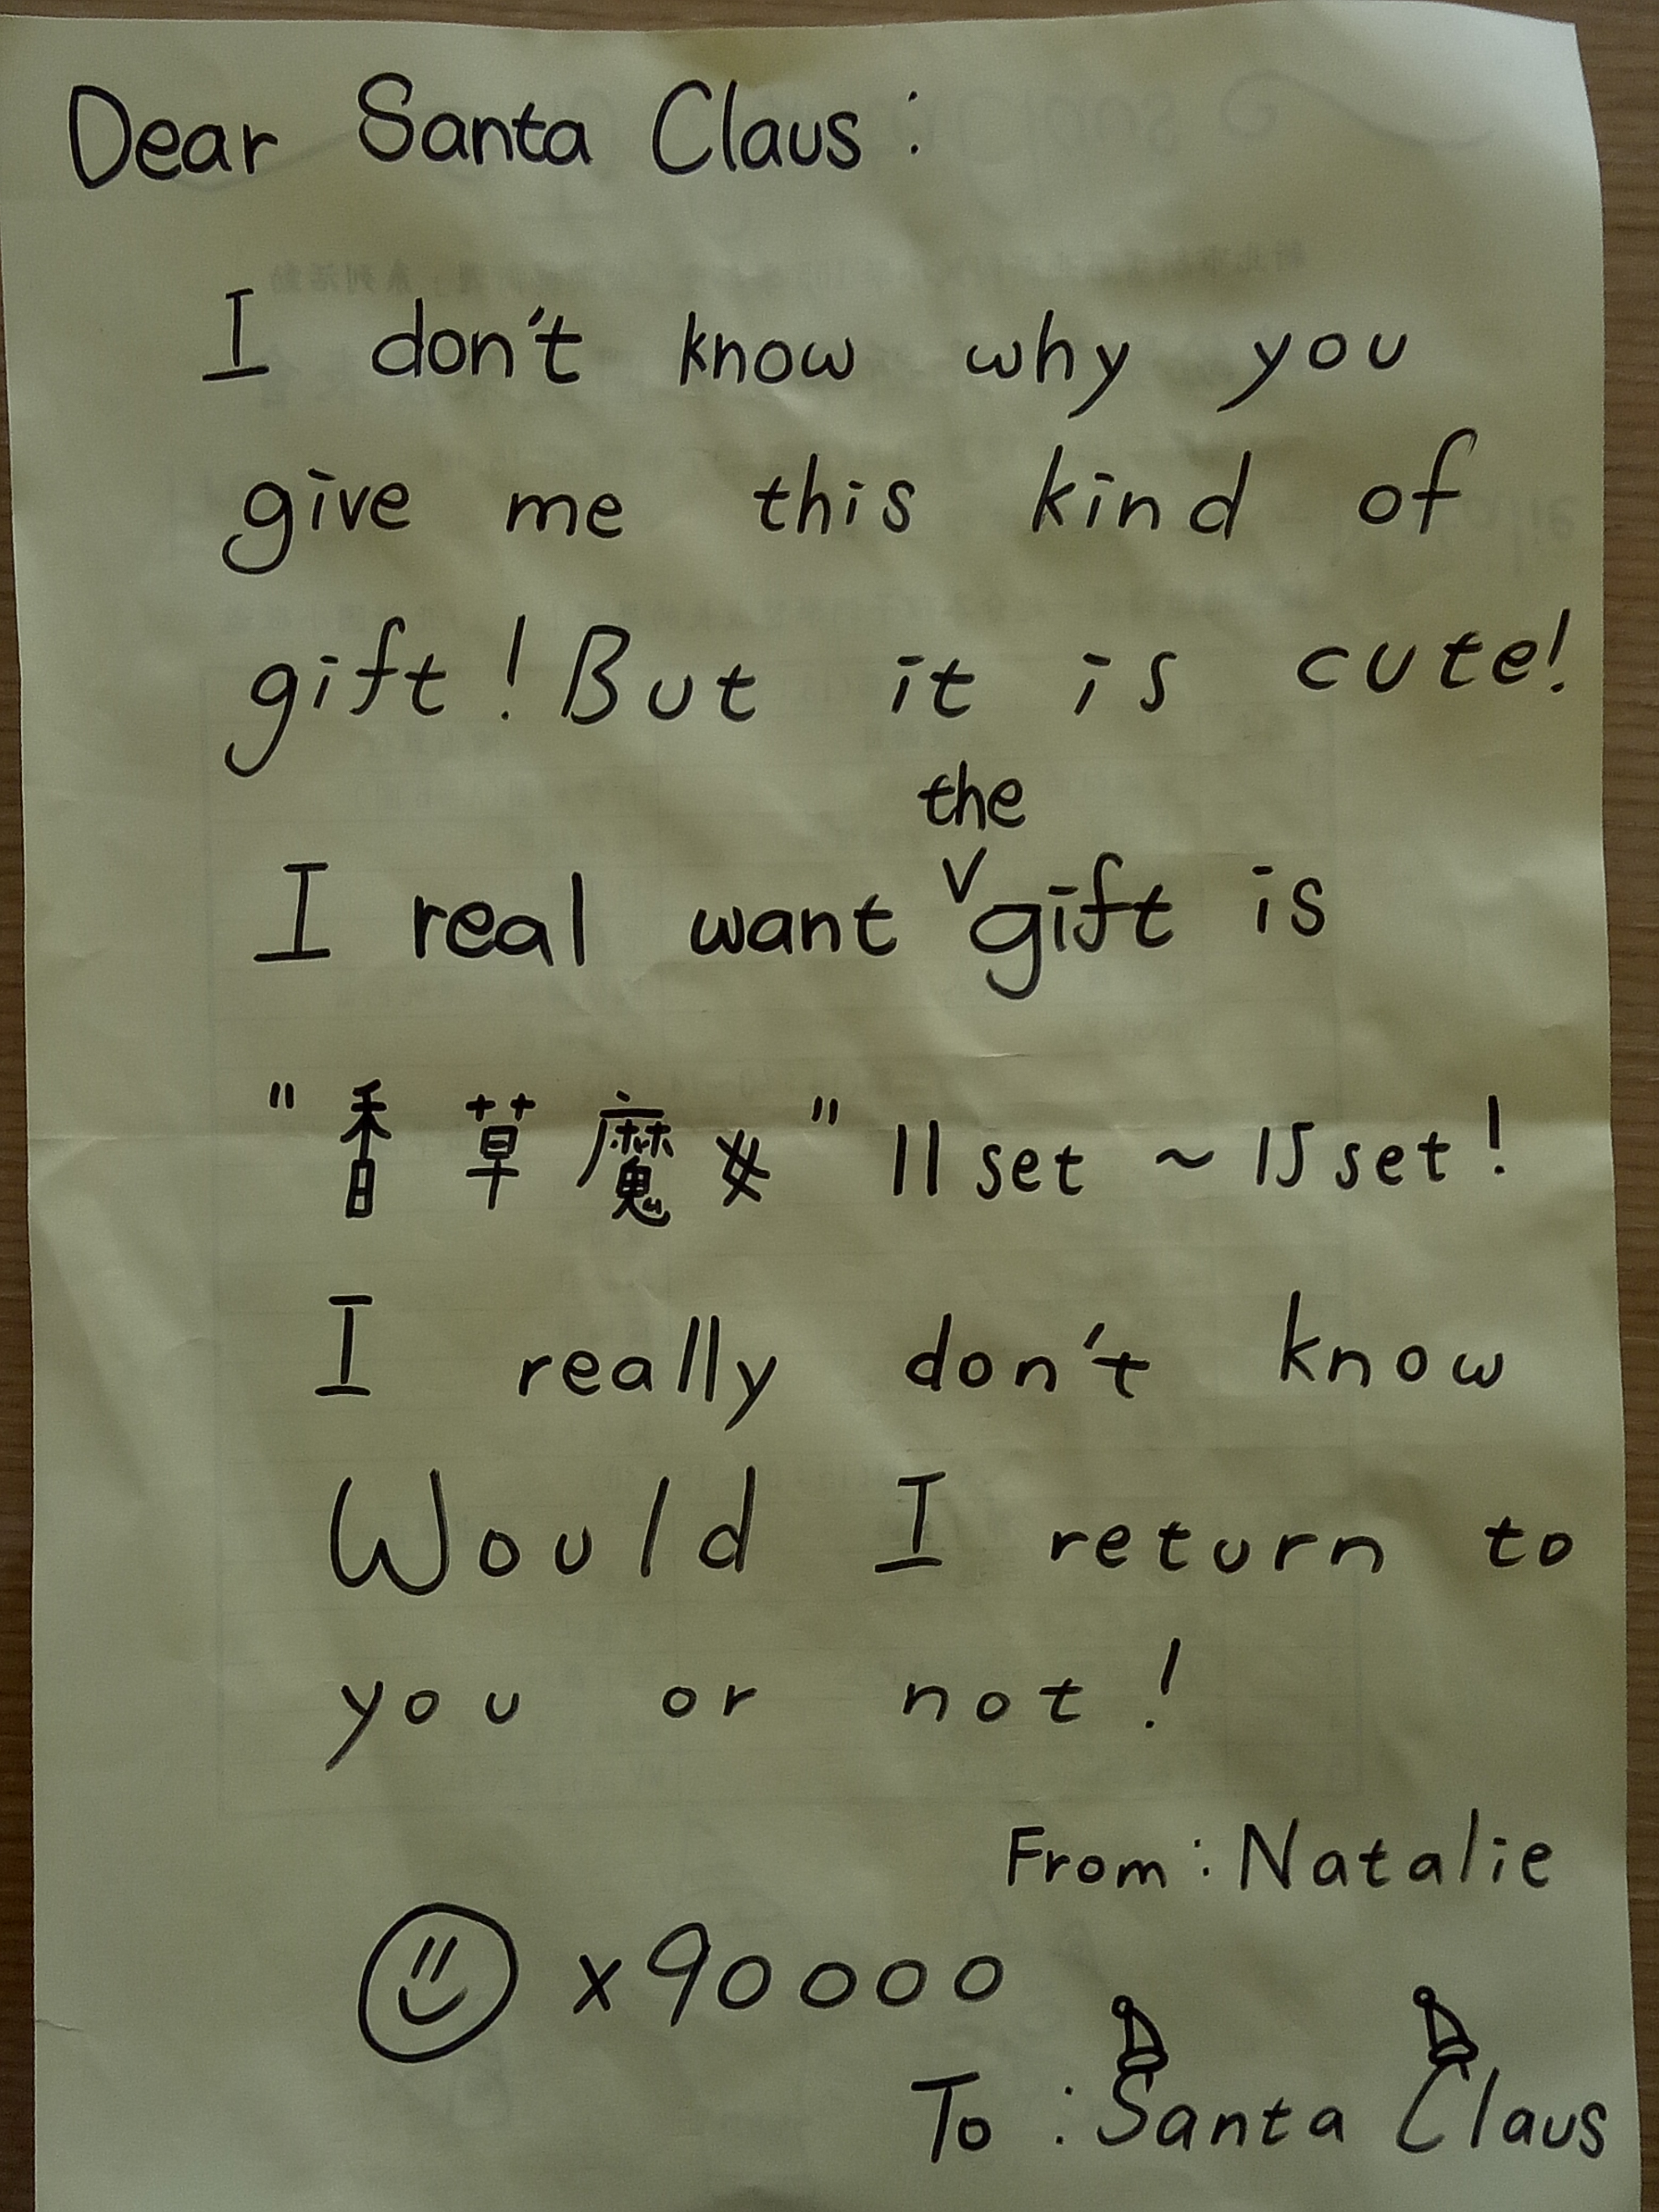 Dear Santa Claus:
I don't know why you
give me this kind of
gift! But it is cute!
the
I real want ∨gift is
"香草魔女" 11 set ~ 15 set!
I really don't know
Would I return to
you or not!
From: Natalie
x90000
To: Santa Claus